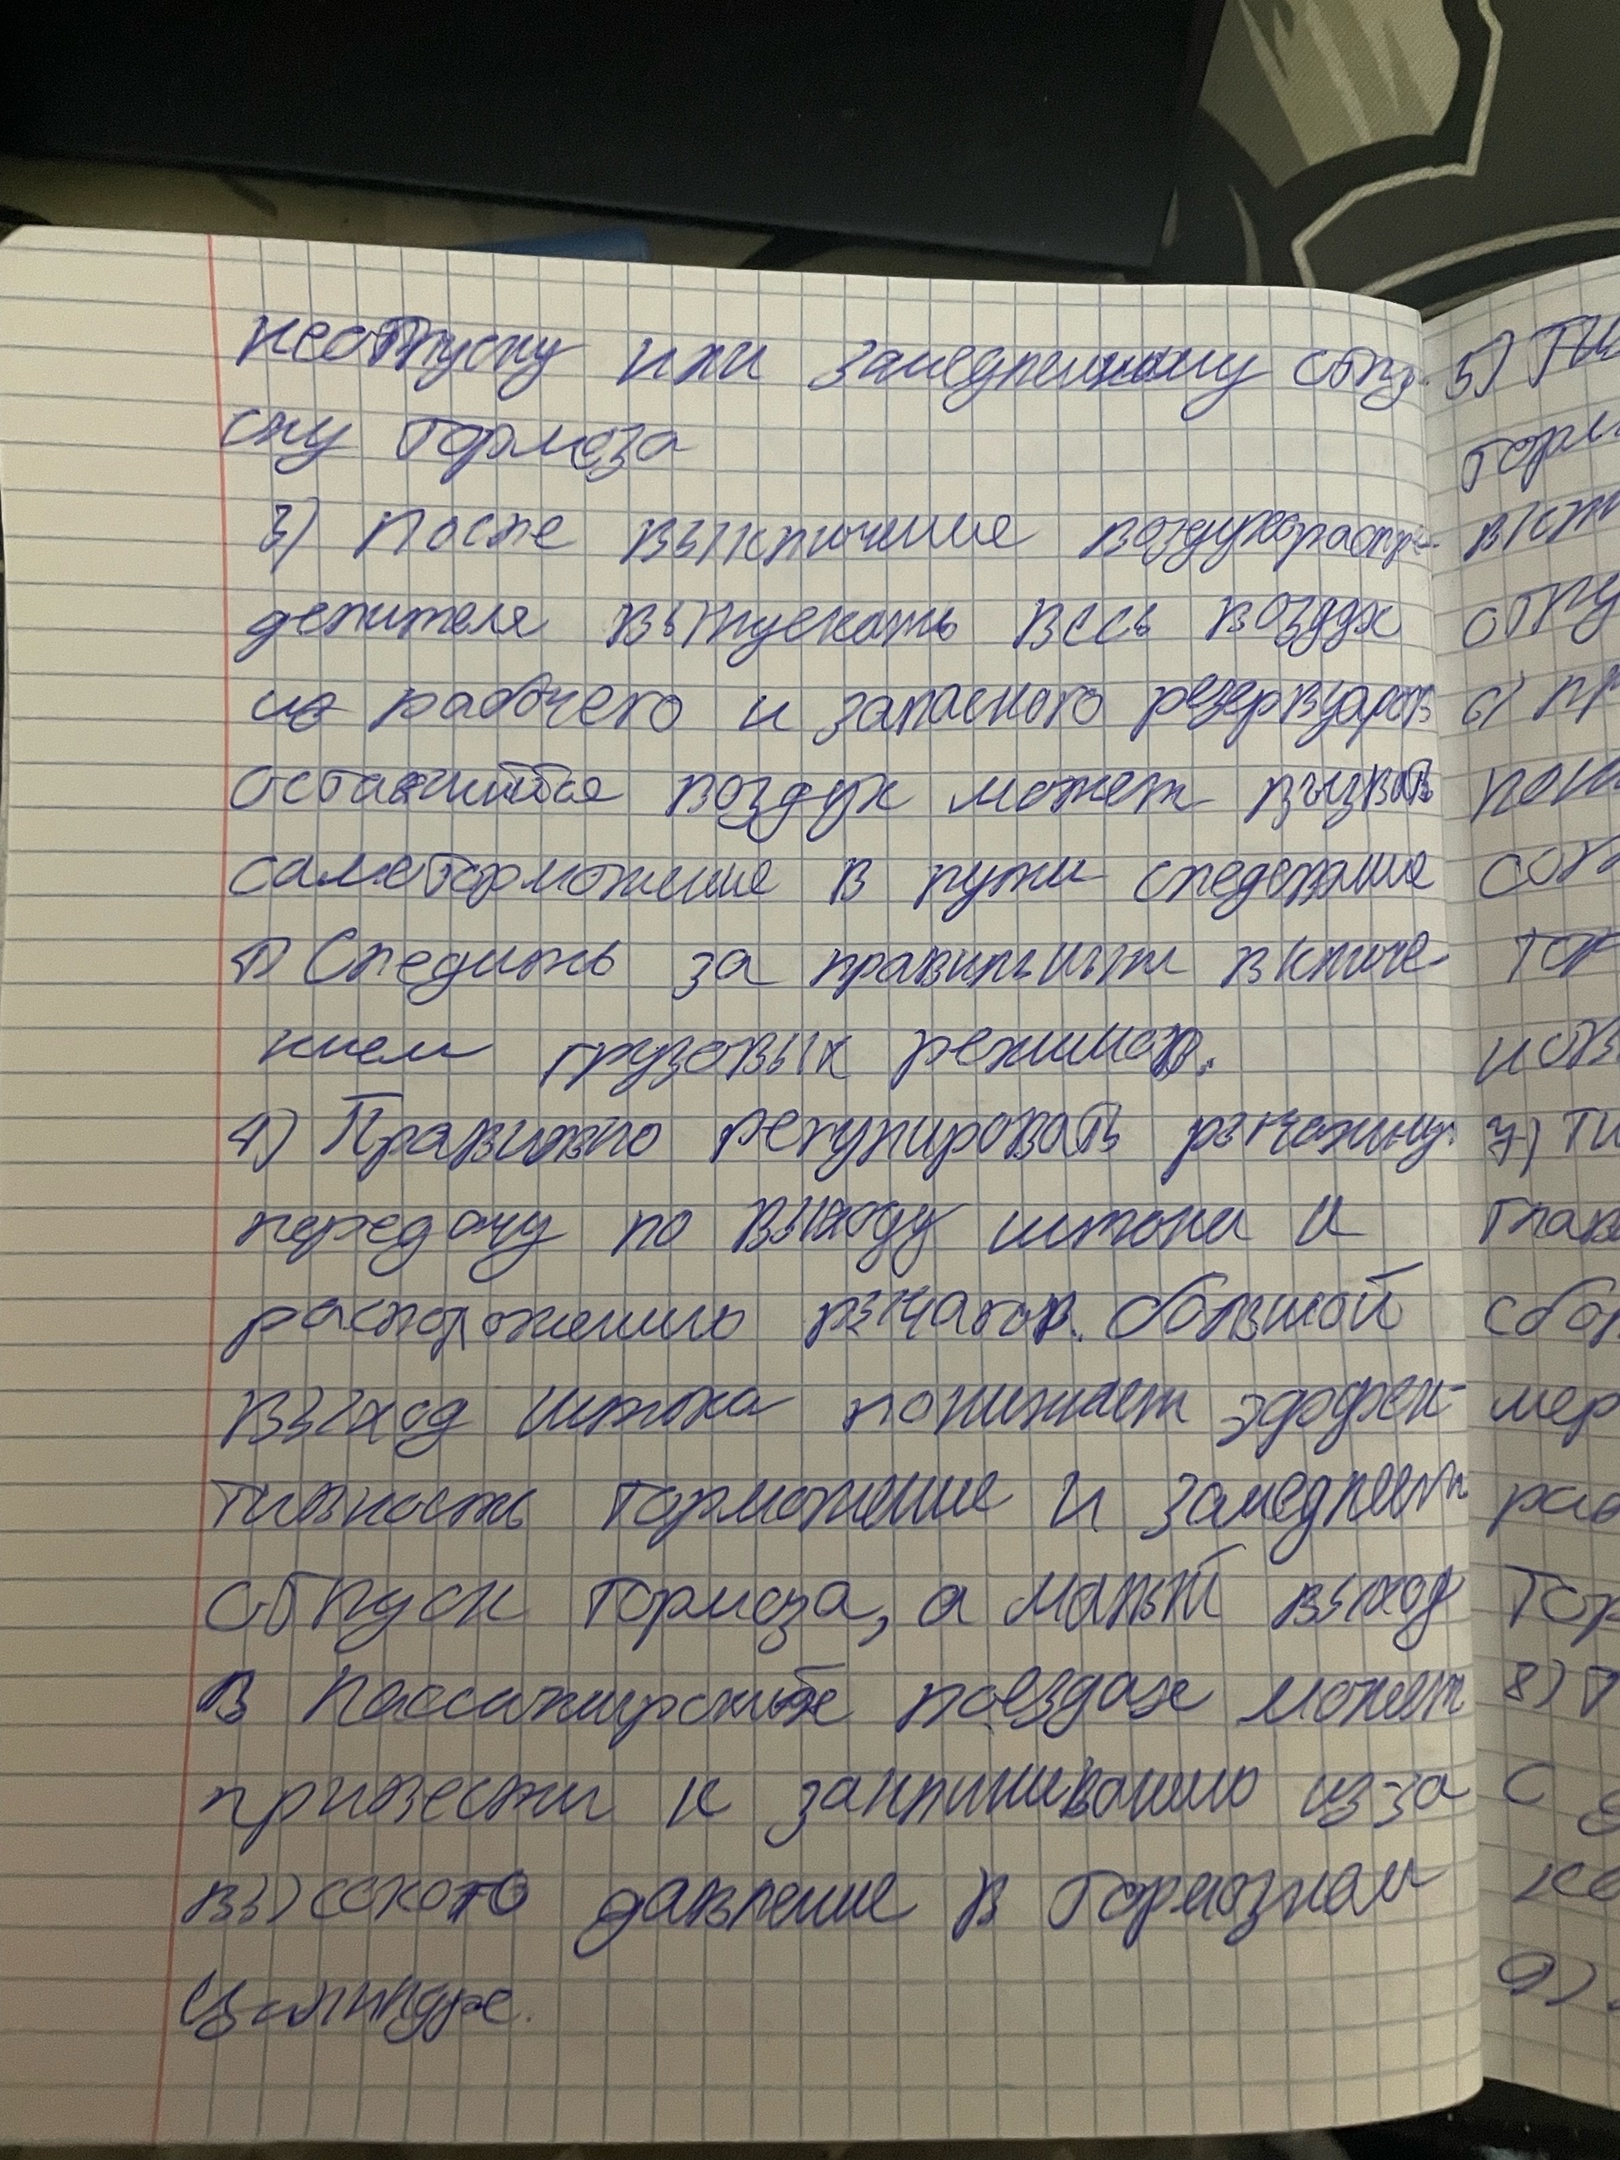 неотпуску или замедленному отпу-
ску тормоза
3) После выключение воздухораспре-
делителя выпускать весь воздух
из рабочего и запасного резервуаров
оставшийся воздух может вызвать
самоторможение в пути следование
Следить за правильным включе-
нием грузовых режимов.
4) Правильно регулировать рычажную
передачу по выходу штока и
расположению рычагов. большой
выход штока понижает эффек-
тивность торможение и замедляет
отпуск тормоза, а малый выход
в пассажирских поездах может
привести к заклиниванию из-за
высокого давление в тормозном
цилиндре.
5)
6)
7)
8)
9)